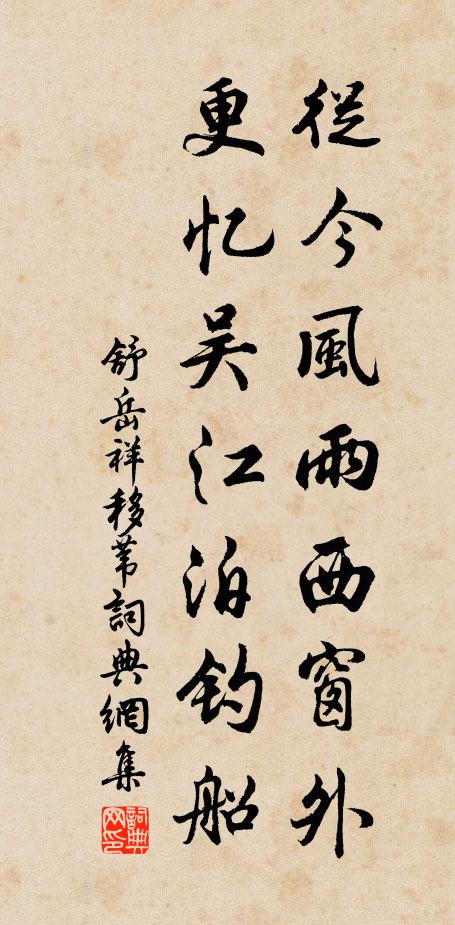 從今風雨西窗外
更忆吴江泊钓船
舒岳祥移苇詞典網集
詞典网印